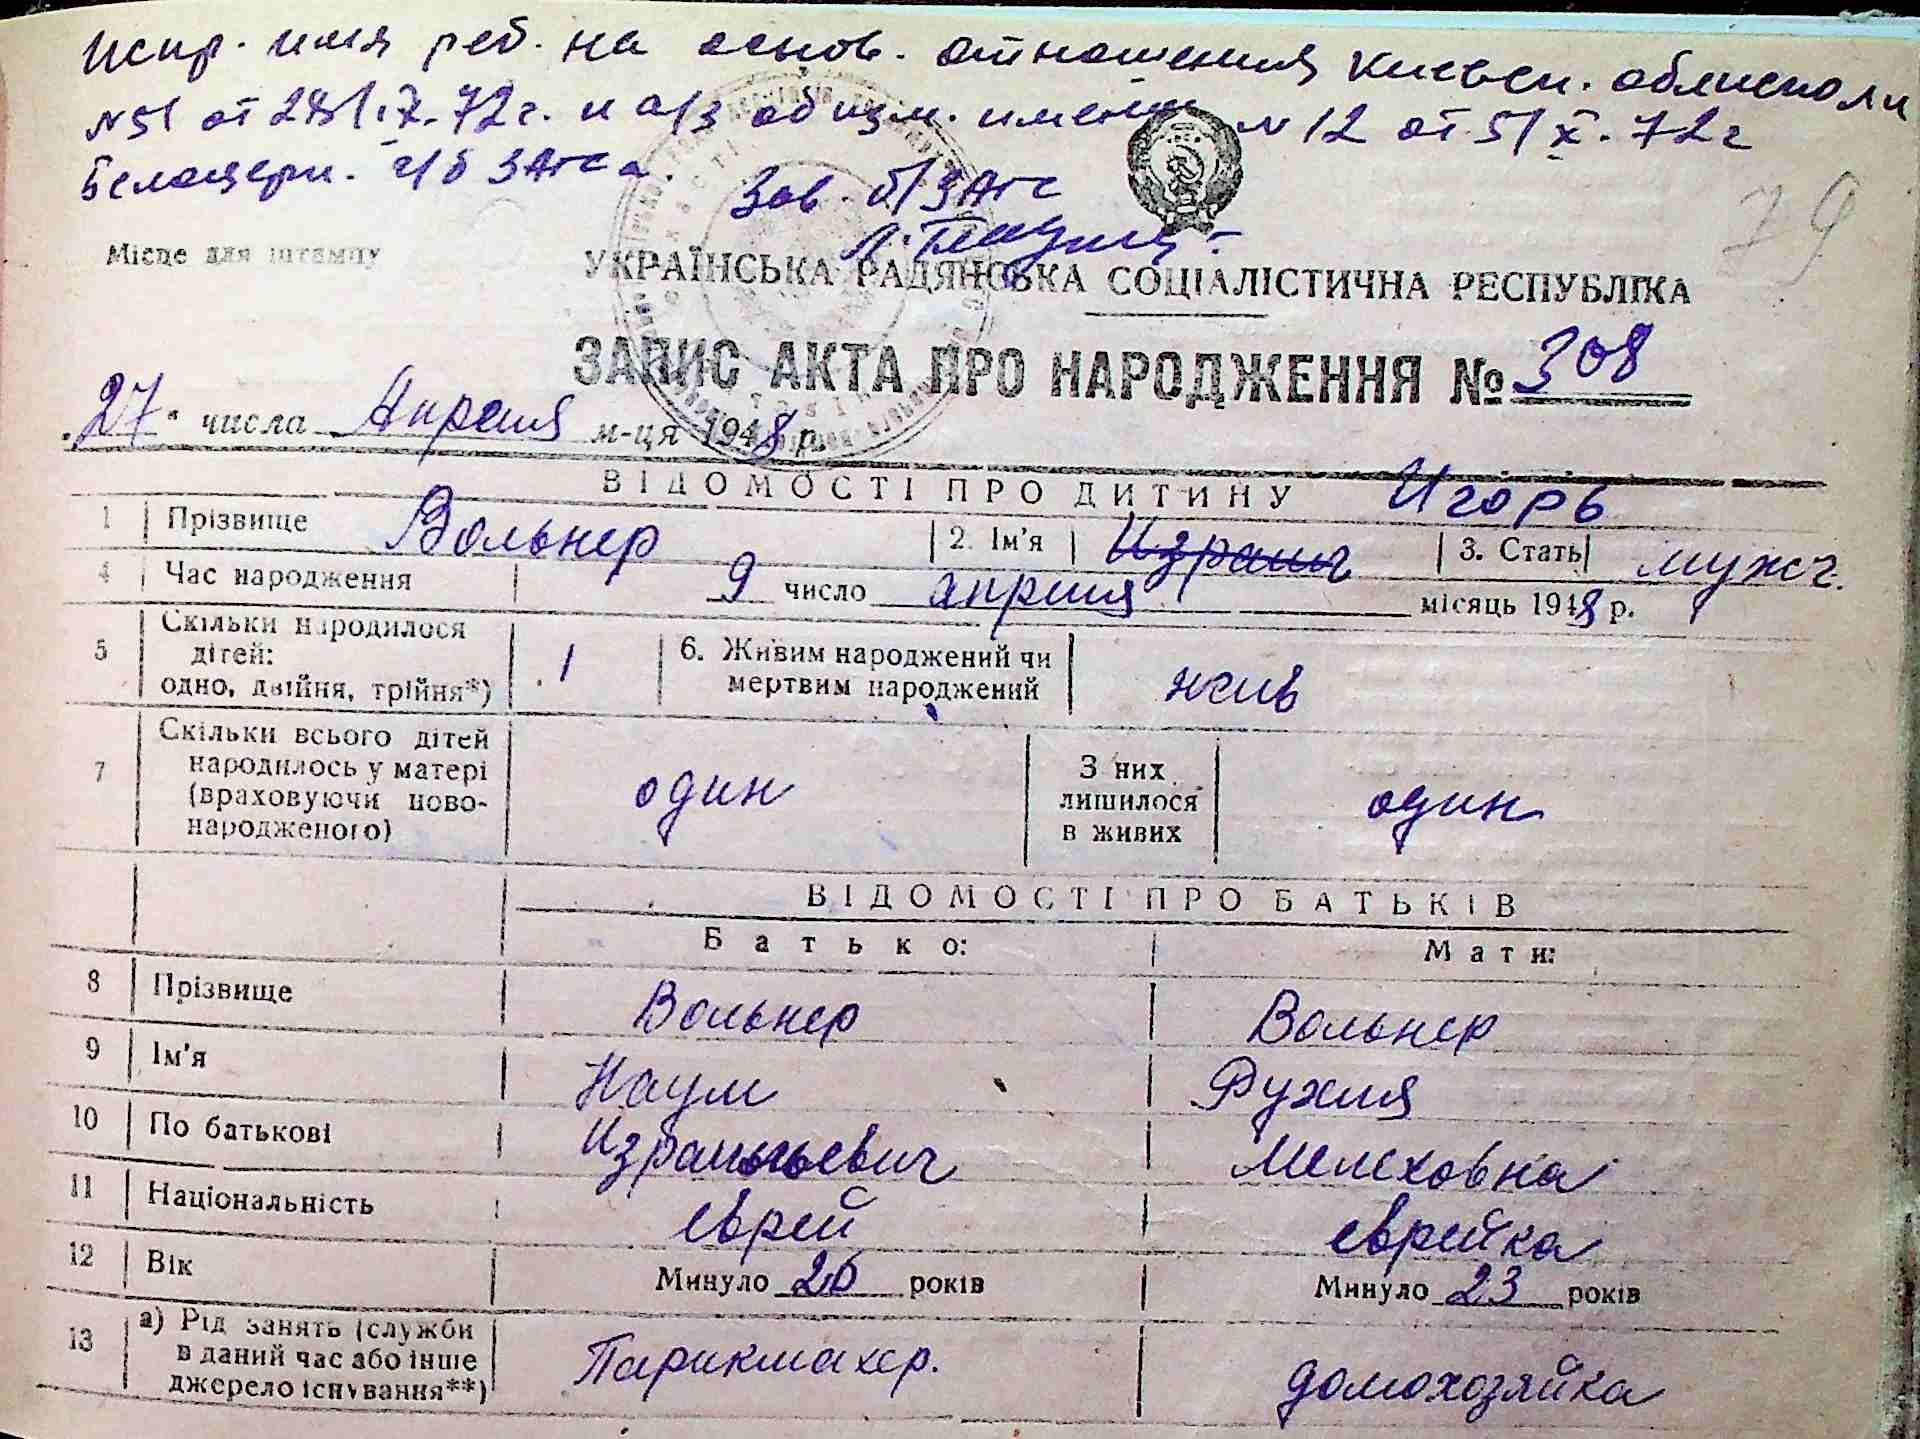 Испр. имя реб. на основ. отношения Киевск. облисполк
№51 от 28/IX-72 г. и а/з об изм. имени №12 от 5/X-72 г
Белоцерк. г/б ЗАГСа.
Зав. б/ЗАГС
79
Місце для штампу
УКРАЇНСЬКА РАДЯНСЬКА СОЦІАЛІСТИЧНА РЕСПУБЛІКА
ЗАПИС АКТА ПРО НАРОДЖЕННЯ № 308
„27" числа Апреля м-ця 1948 р.
ВІДОМОСТІ ПРО ДИТИНУ Игорь
1 Прізвище Вольнер 2. Ім'я Израиль 3. Стать мужч.
4 Час народження 9 число апреля місяць 1948 р.
5 Скільки народилося дітей: одно, двійня, трійня*) 1 6. Живим народжений чи мертвим народжений жив
7 Скільки всього дітей народилось у матері (враховуючи ново-народженого) один З них лишилося в живих один
ВІДОМОСТІ ПРО БАТЬКІВ
Батько: Мати:
8 Прізвище Вольнер Вольнер
9 Ім'я Наум Рухля
10 По батькові Израильевич Мелеховна
11 Національність еврей еврейка
12 Вік Минуло 26 років Минуло 23 років
13 а) Рід занять (служби в даний час або інше джерело існування**) Парикмахер. домохозяйка